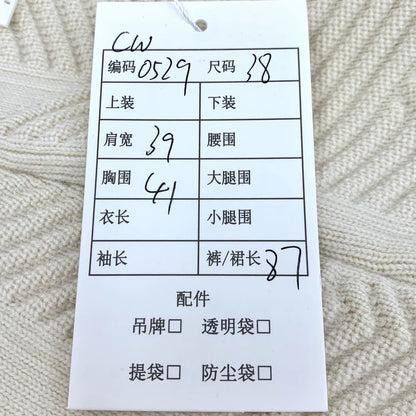 CW
编码 0529 尺码 38
上装 下装
肩宽 39 腰围
胸围 41 大腿围
衣长 小腿围
袖长 裤/裙长 87
配件
吊牌□ 透明袋□
提袋□ 防尘袋□